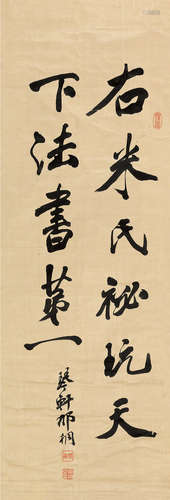 右米氏祕玩天
下法書第一
琴軒那桐